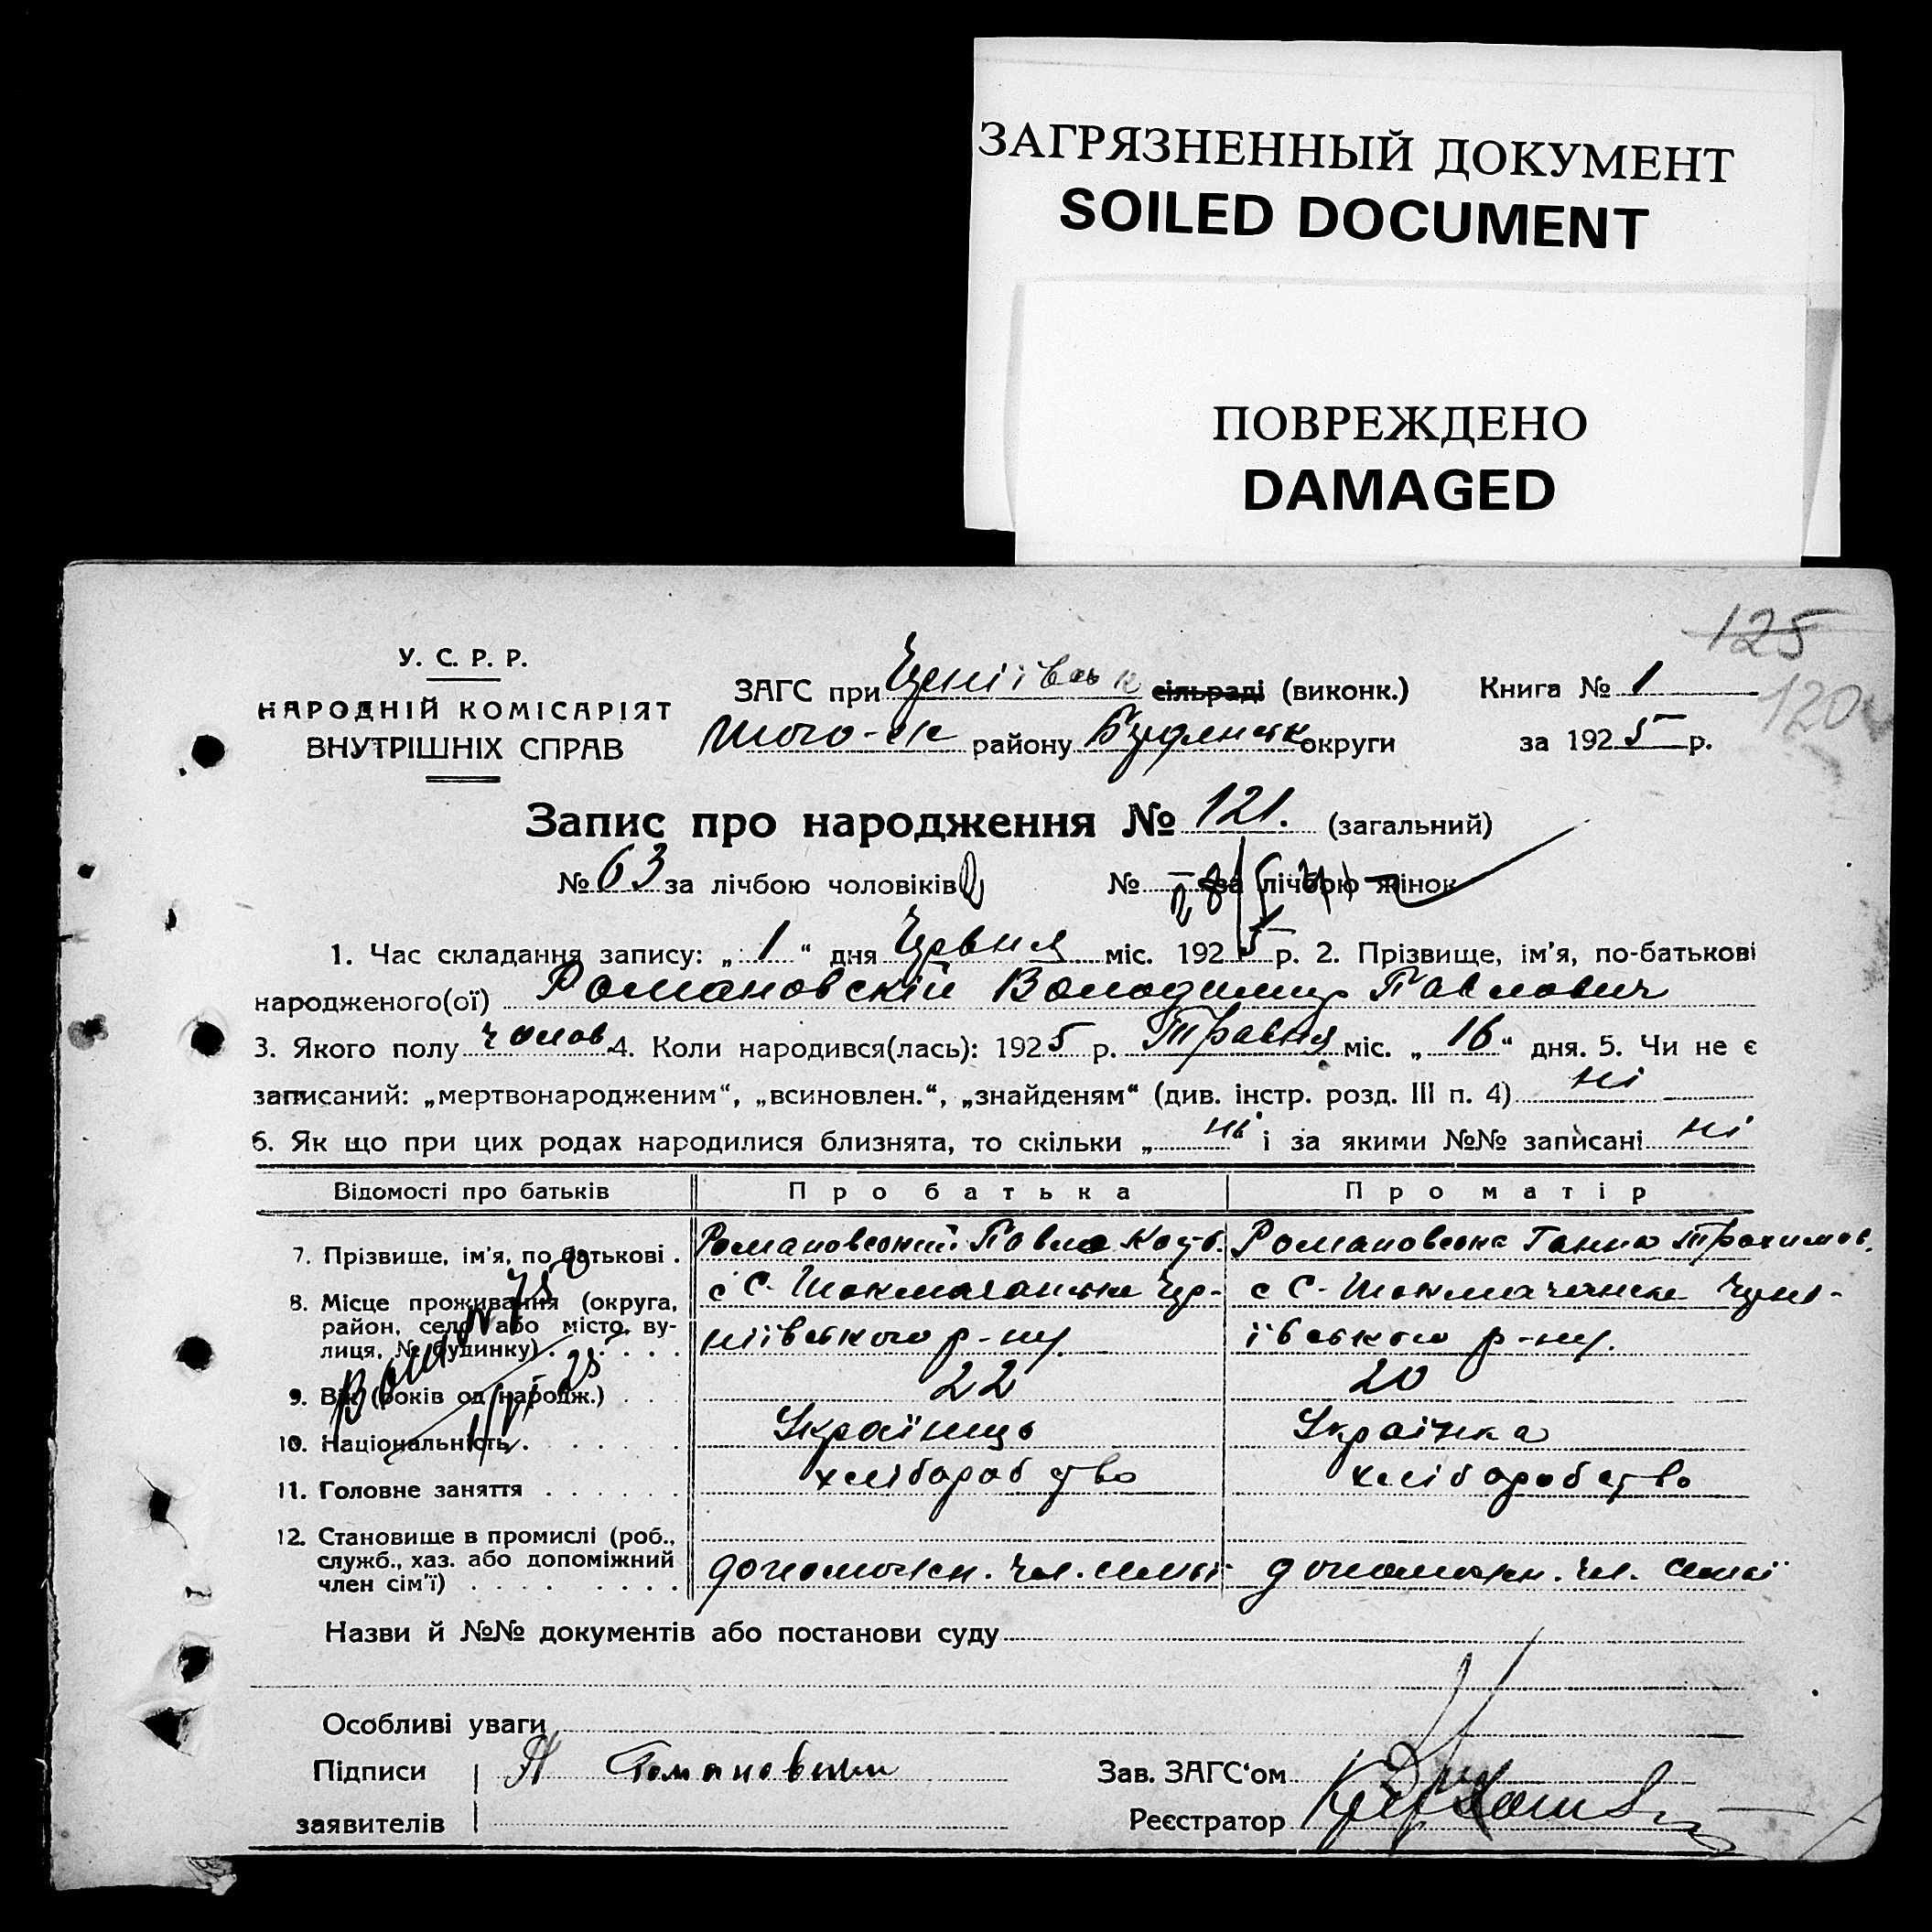 ЗАГРЯЗНЕННЫЙ ДОКУМЕНТ
SOILED DOCUMENT
ПОВРЕЖДЕНО
DAMAGED
125
120
У. С. Р. Р.
НАРОДНІЙ КОМІСАРІЯТ
ВНУТРІШНІХ СПРАВ
ЗАГС при сільраді (виконк.) Книга № 1
району округи за 1925 р.
Запис про народження № 121. (загальний)
№ 63 за лічбою чоловіків № за лічбою жінок
1. Час складання запису: „ 1 “ дня Червня міс. 1925 р. 2. Прізвище, ім'я, по-батькові
народженого(ої) Романовскій Володимир Павлович
3. Якого полу чолов. 4. Коли народився(лась): 1925 р. Травня міс. „ 16 “ дня. 5. Чи не є
записаний: „мертвонародженим“, „всиновлен.“, „знайденям“ (див. інстр. розд. III п. 4) ні
6. Як що при цих родах народилися близнята, то скільки „ ні і за якими №№ записані ні
Відомості про батьків Про батька Про матір
7. Прізвище, ім'я, по батькові . Романовский Павло Романовська Ганна Трохимов.
8. Місце проживання (округа,
район, село або місто, ву-
лиця, № будинку) . . . . . . р-ну р-ну.
9. Вік (років од народж.) . . 22 20
10. Національність . . . . . . Українець Українка
11. Головне заняття . . . . . . хліборобство хліборобство
12. Становище в промислі (роб.,
служб., хаз. або допоміжний
член сім'ї) . . . . . . . . допоможн. чл. семьї допоможн. чл. семьї
Назви й №№ документів або постанови суду
Особливі уваги
Підписи Зав. ЗАГС'ом
заявителів Реєстратор